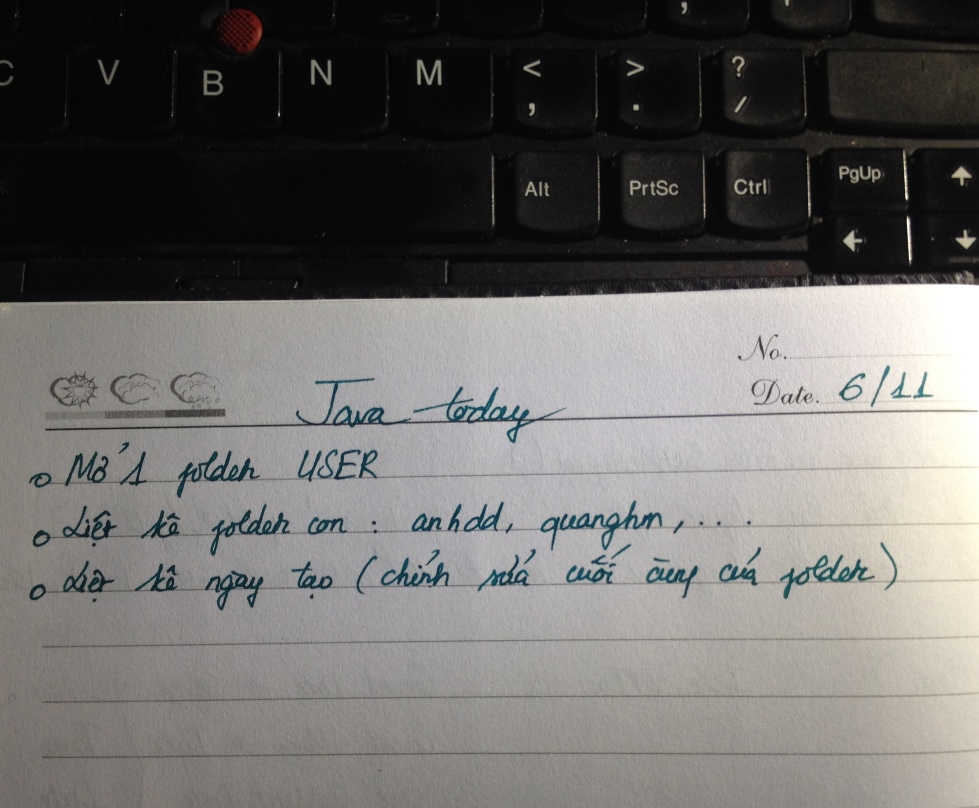 C V B N M < , > . ? /
Alt PrtSc Ctrl PgUp
No.
Date. 6/11
Java today
Mở 1 folder USER
Liệt kê folder con : anhdd, quanghm, . . .
Liệt kê ngày tạo (chỉnh sửa cuối cùng của folder)